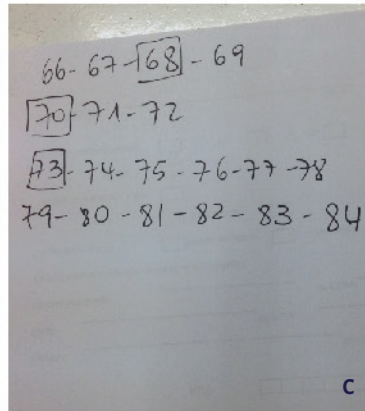 66-67-68-69
70-71-72
73-74-75-76-77-78
79-80-81-82-83-84
C